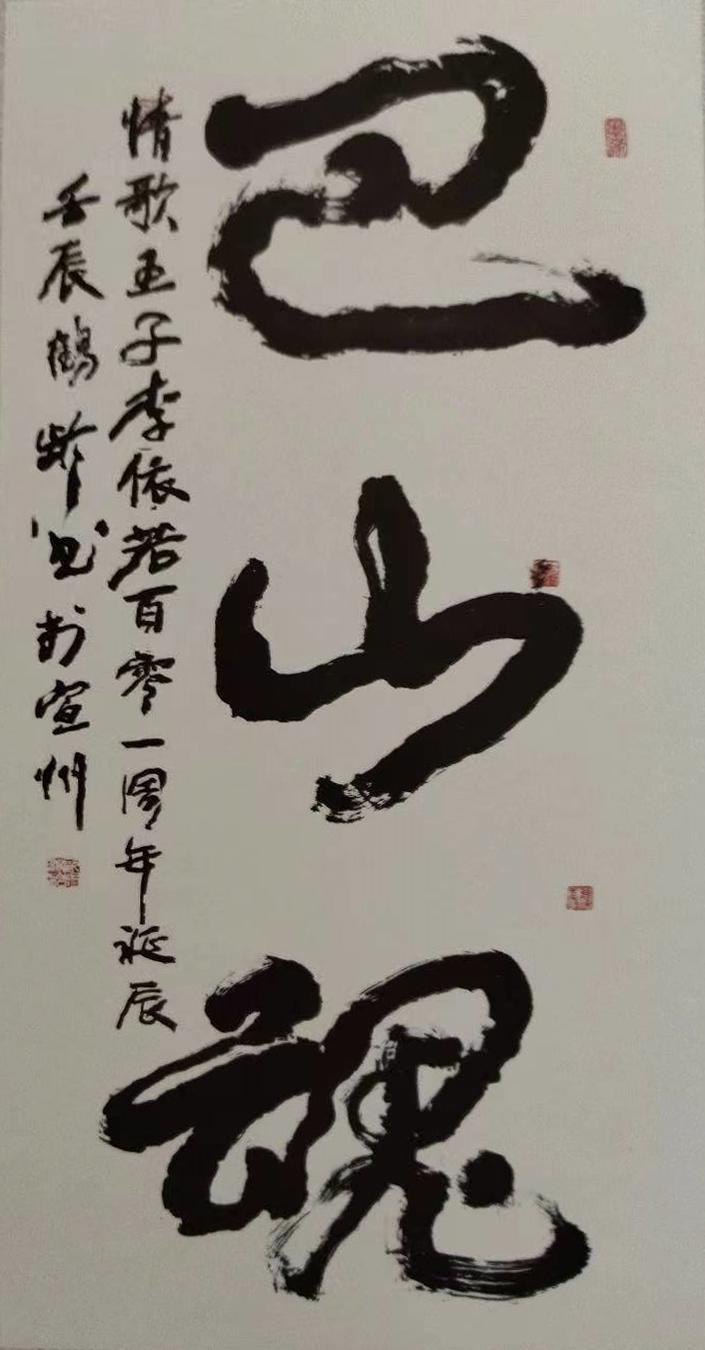 巴山魂
情歌王子李依若百零一周年诞辰
壬辰鹤龄书于宣州